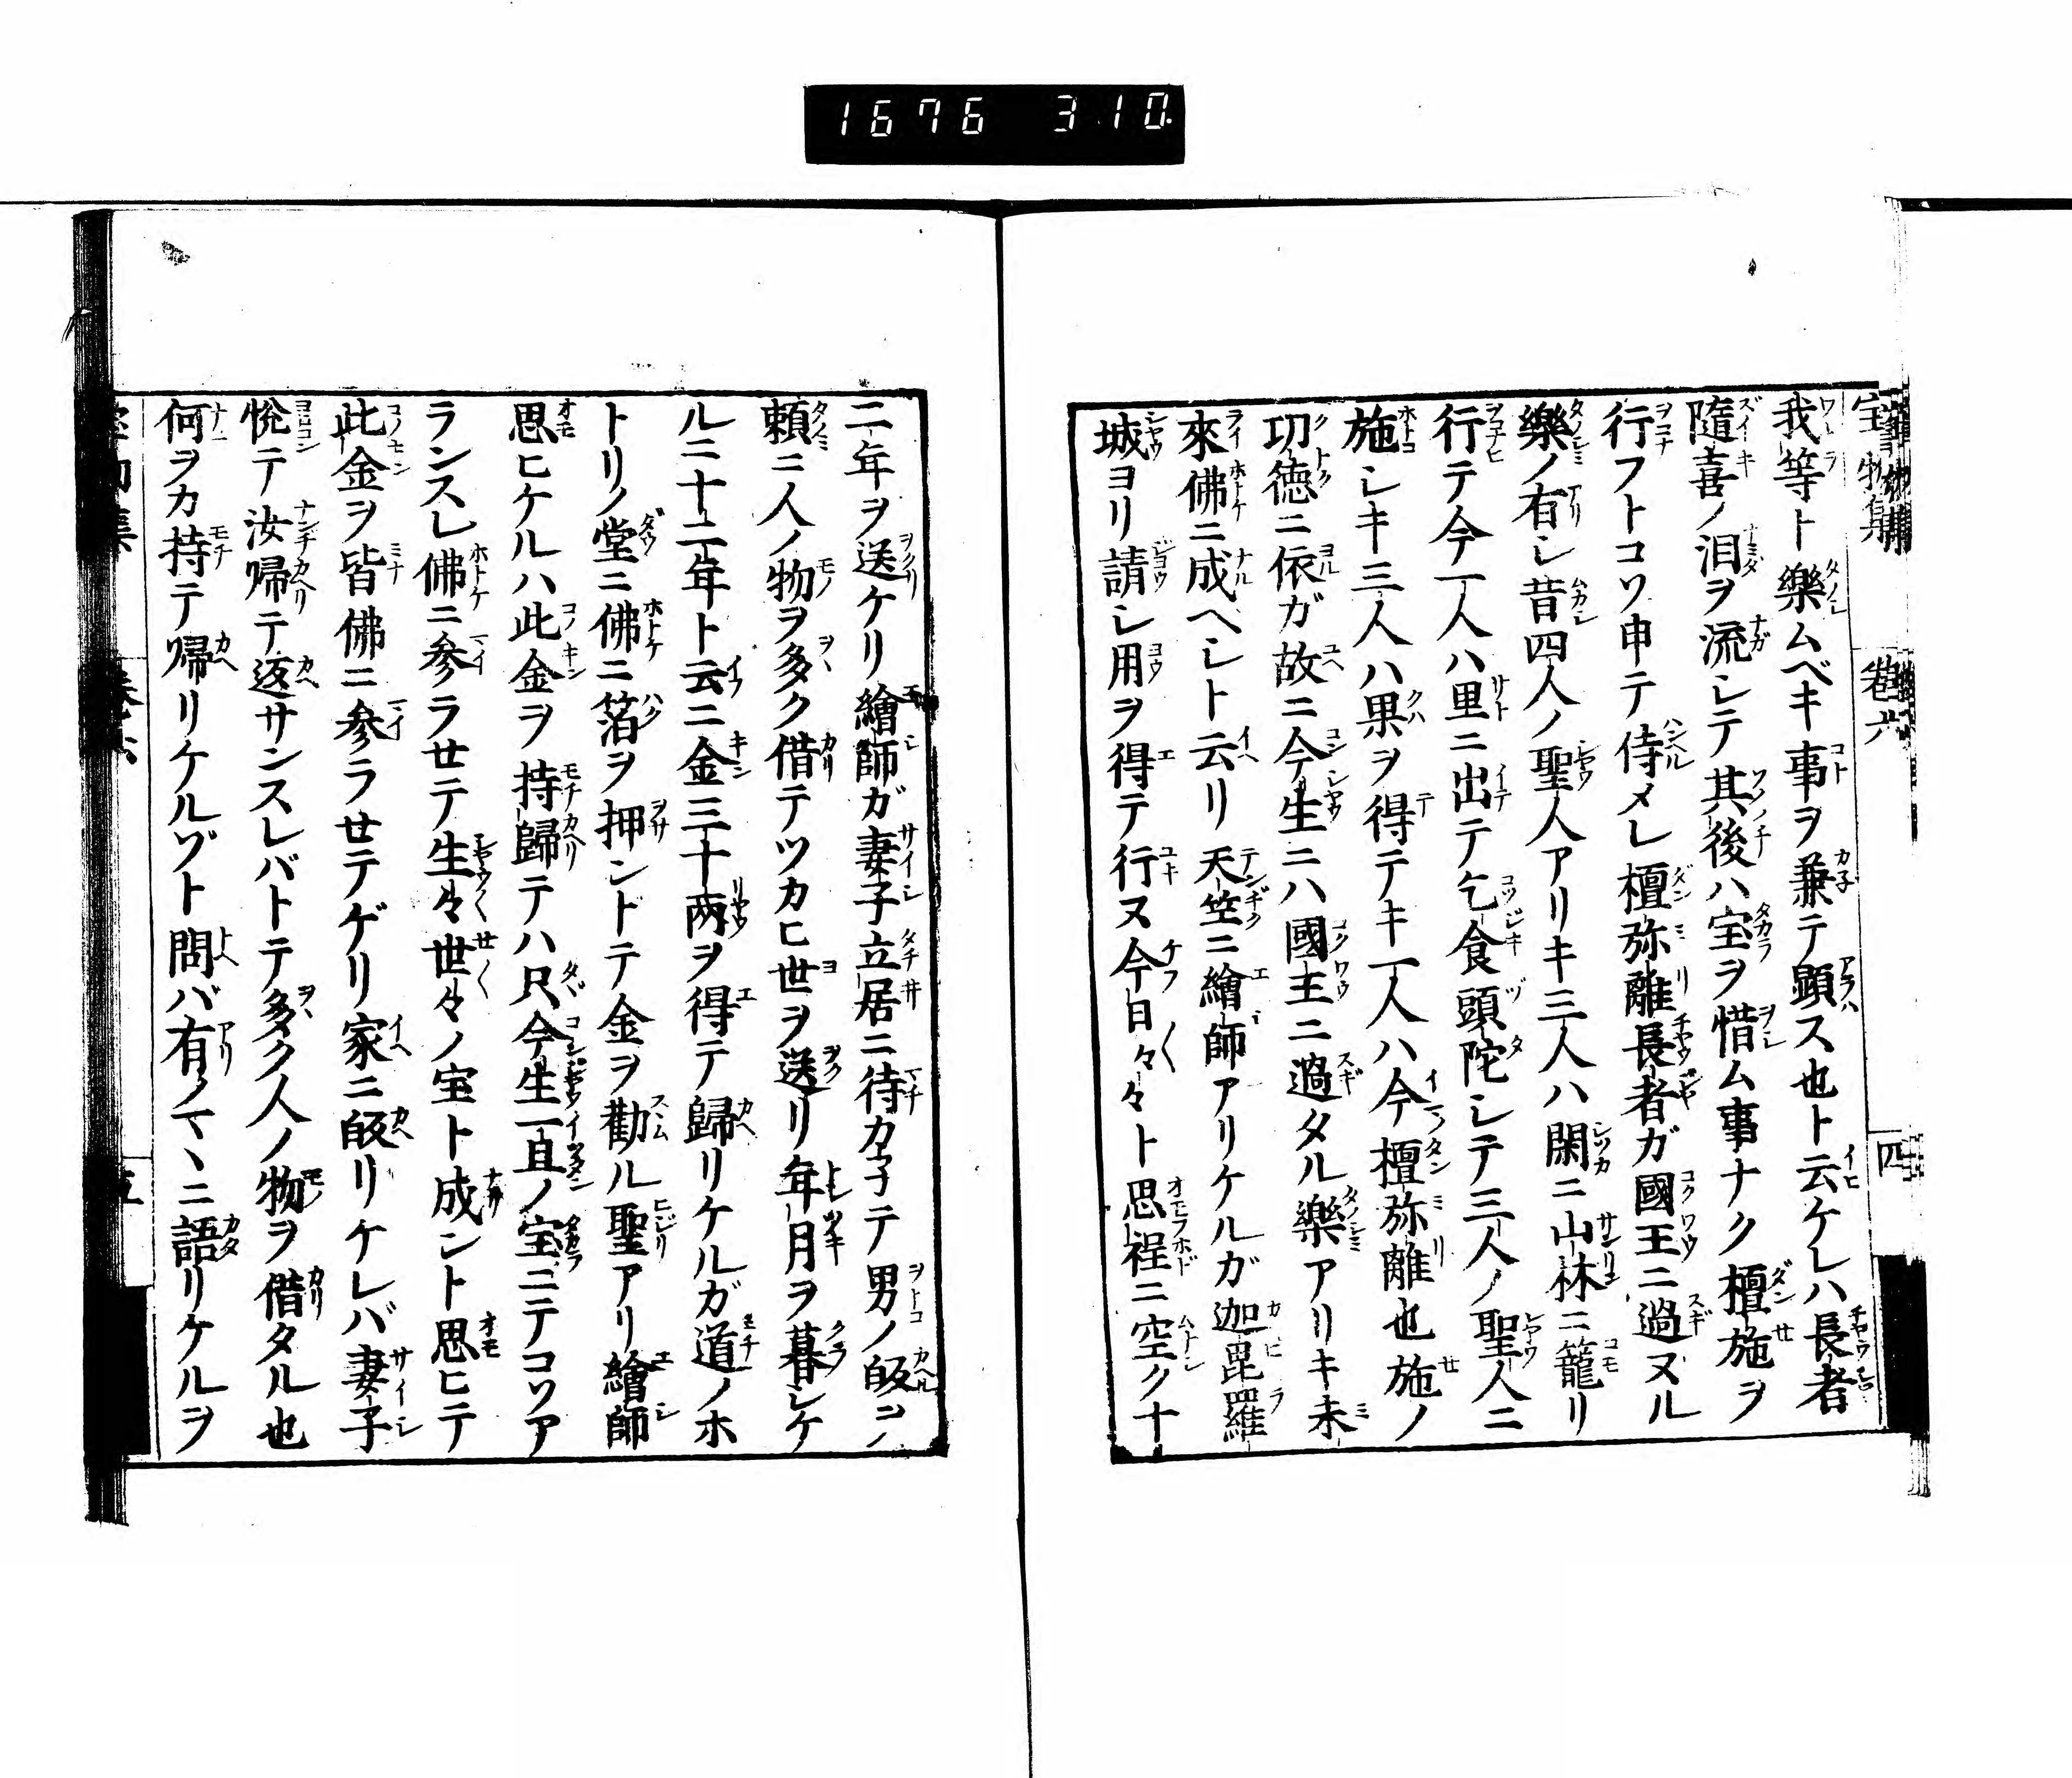 1676 310.
宝物集 巻六 四
我等ト樂ムベキ事ヲ兼テ顕ス也ト云ケレハ長者
隨喜ノ泪ヲ流シテ其後ハ宝ヲ惜ム事ナク檀施ヲ
行フトコソ申テ侍メレ檀弥離長者ガ國王ニ過ヌル
樂ノ有シ昔四人ノ聖人アリキ三人ハ閑ニ山林ニ籠リ
行テ今一人ハ里ニ出テ乞食頭陀シテ三人ノ聖人ニ
施シキ三人ハ果ヲ得テキ一人ハ今檀弥離也施ノ
功德ニ依ガ故ニ今生ニハ國王ニ過タル樂アリキ未
來佛ニ成ヘシト云リ天竺ニ繪師アリケルガ迦毘羅
城ヨリ請シ用ヲ得テ行ヌ今日々々ト思程ニ空ク十
二年ヲ送ケリ繪師ガ妻子立居ニ待カ子テ男ノ皈ヲノ
頼ニ人ノ物ヲ多ク借テツカヒ世ヲ送リ年月ヲ暮シケ
ルニ十二年ト云ニ金三十两ヲ得テ歸リケルガ道ノホ
トリノ堂ニ佛ニ箔ヲ押ントテ金ヲ勸ル聖アリ繪師
思ヒケルハ此金ヲ持歸テハ只今生一旦ノ宝ニテコソア
ランスレ佛ニ参ラせテ生々世々ノ宝ト成ント思ヒテ
此金ヲ皆佛ニ参ラせテゲリ家ニ皈リケレバ妻子
悅テ汝帰テ返サンスレバトテ多ク人ノ物ヲ借タル也
何ヲカ持テ帰リケルゾト問バ有ノマヽニ語リケルヲ